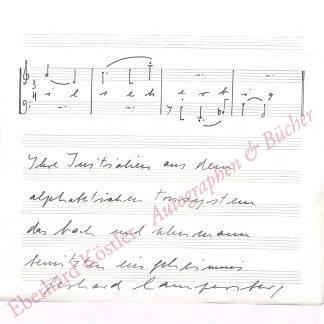 s i l s e h e r b i g
Ihre Initialen aus dem
alphabetischen tonsystem
das bach und
benützten ein geheimnis
gerhard lampersberg
Eberhard Köstler - Autographen & Bücher